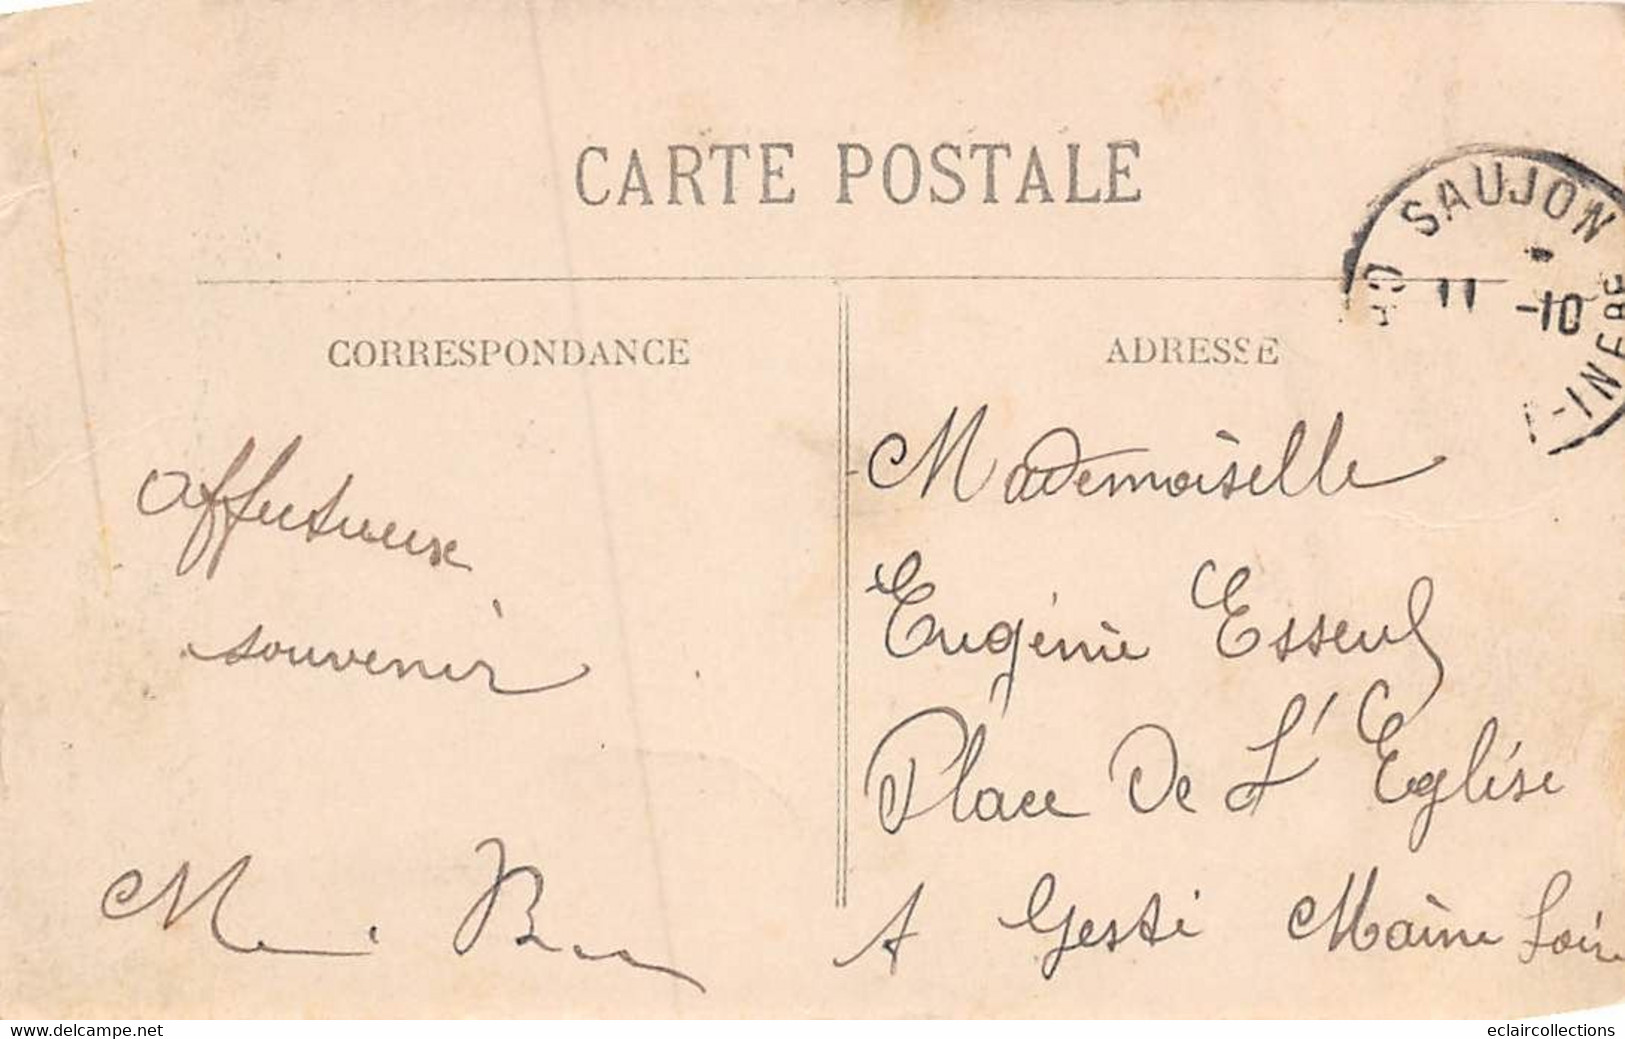 CARTE POSTALE
SAUJON
11 -10
-INFRE
CORRESPONDANCE
ADRESSE
affectueux
souvenir
Mademoiselle
Eugénie Esseul
Place De L'Eglise
A Gesté Maine Loire
www.delcampe.net
eclaircollections